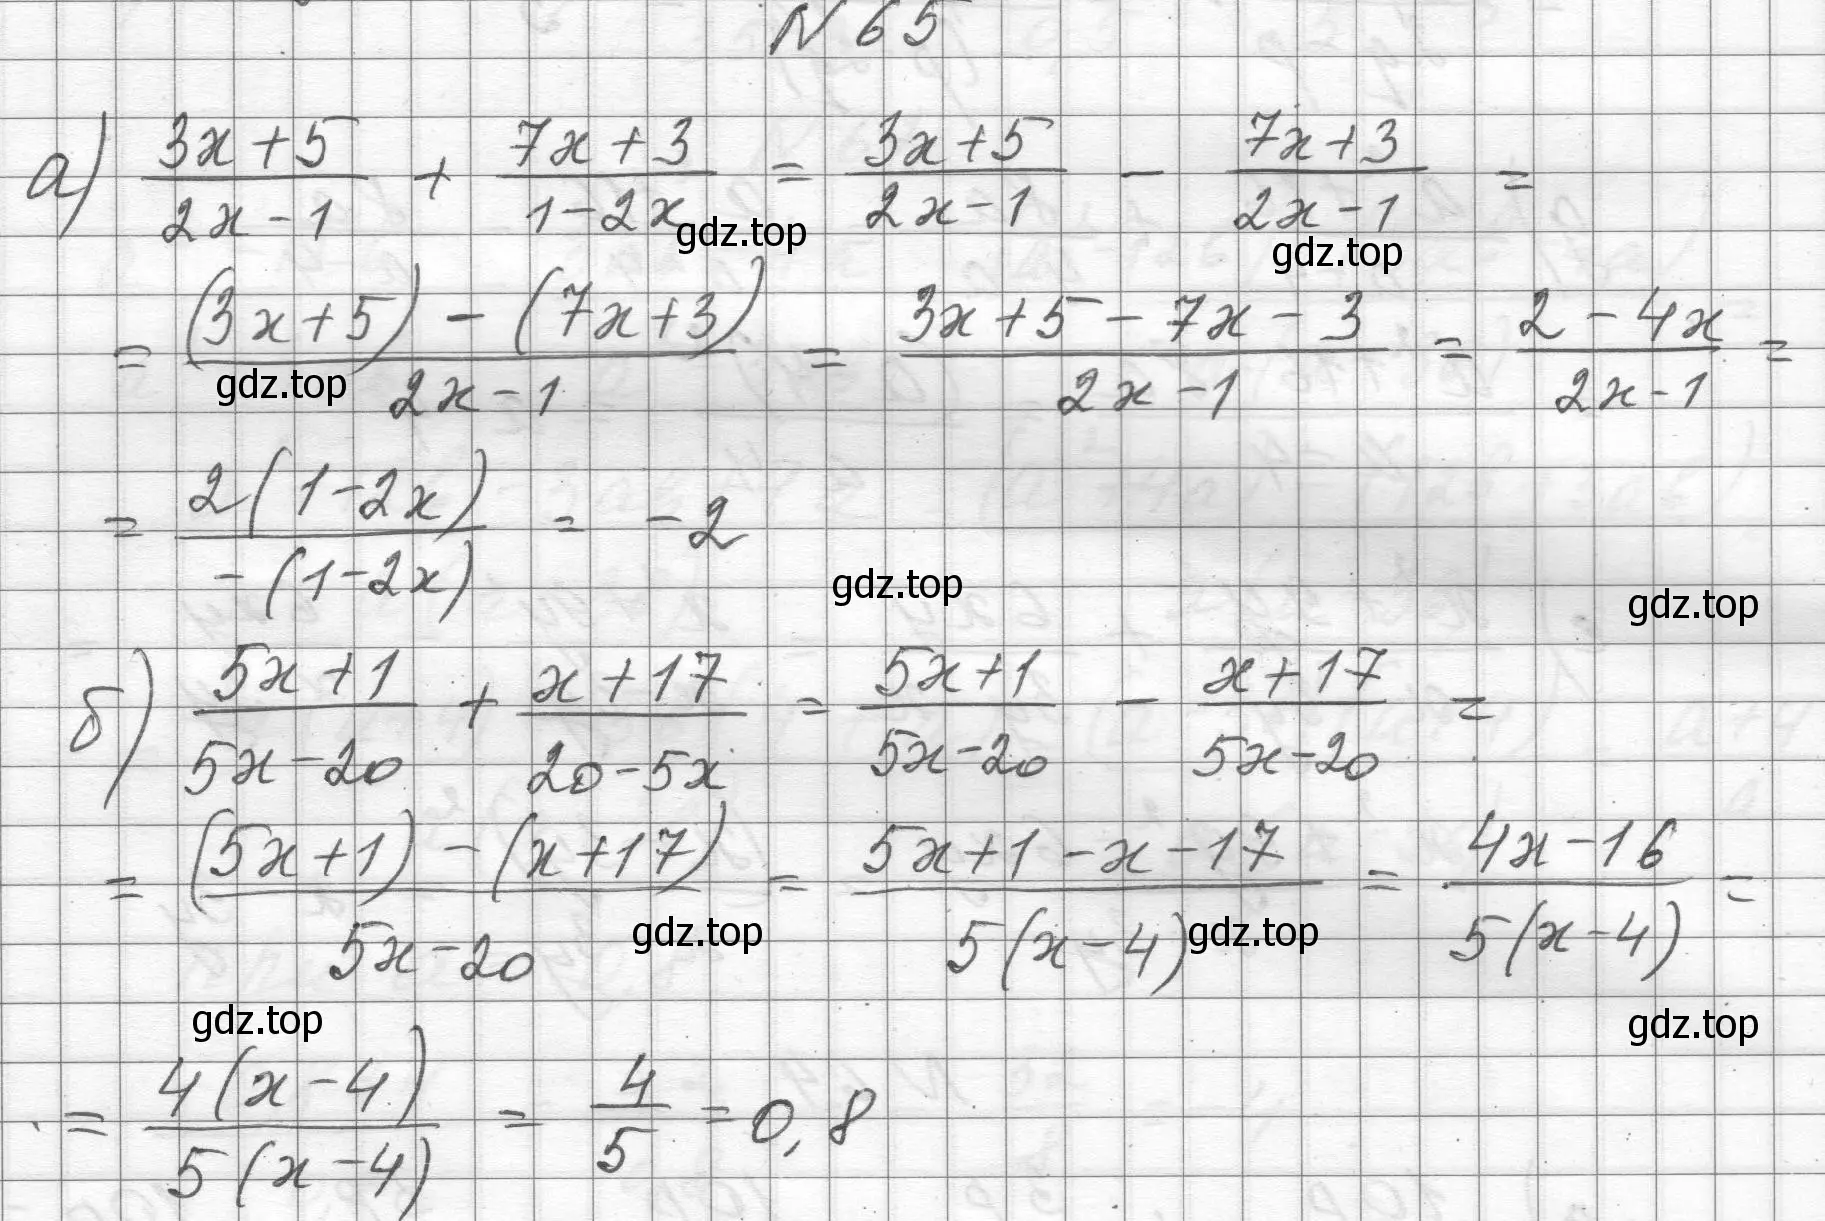 N 65
а) (3x+5)/(2x-1) + (7x+3)/(1-2x) = (3x+5)/(2x-1) - (7x+3)/(2x-1) =
gdz.top gdz.top
= ((3x+5)-(7x+3))/(2x-1) = (3x+5-7x-3)/(2x-1) = (2-4x)/(2x-1) =
gdz.top
= 2(1-2x)/(-(1-2x)) = -2
gdz.top gdz.top
б) (5x+1)/(5x-20) + (x+17)/(20-5x) = (5x+1)/(5x-20) - (x+17)/(5x-20) =
= ((5x+1)-(x+17))/(5x-20) = (5x+1-x-17)/(5(x-4)) = (4x-16)/(5(x-4)) =
gdz.top gdz.top
gdz.top gdz.top
= 4(x-4)/(5(x-4)) = 4/5 = 0,8